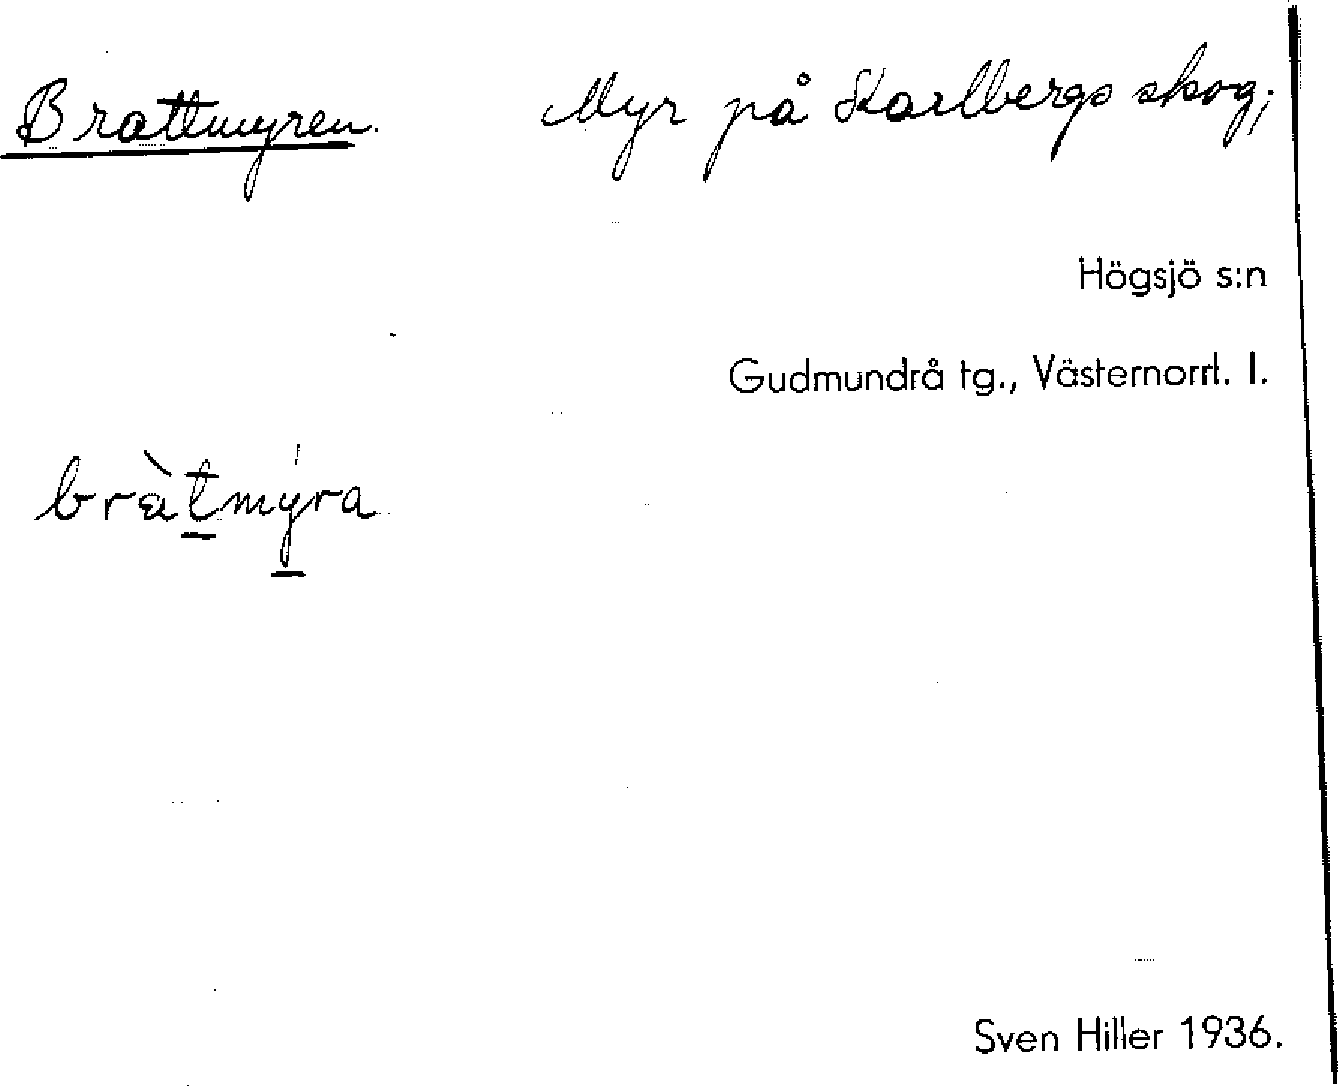 Brattmyren. Myr på Karlbergs skog;
Högsjö s:n
Gudmundrå tg., Västernorrl. l.
bràt̲mý̲ra
Sven Hiller 1936.